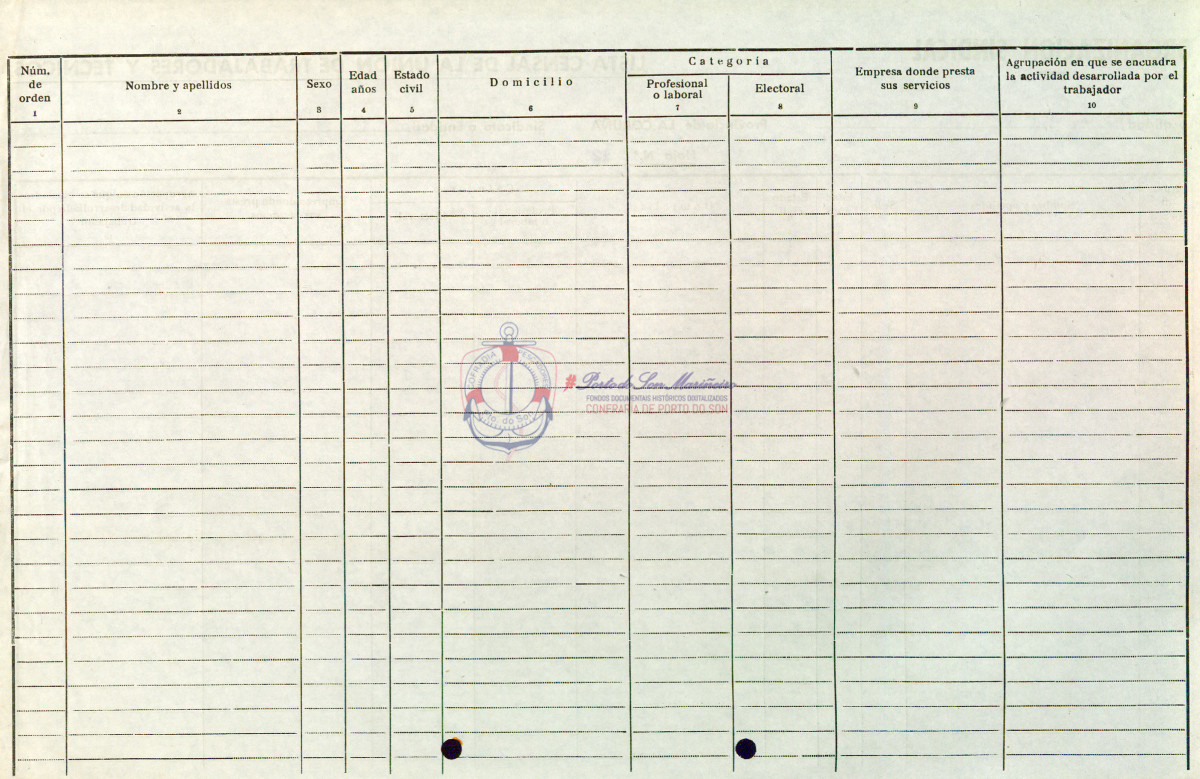 Núm. de orden
1
Nombre y apellidos
2
Sexo
3
Edad años
4
Estado civil
5
Domicilio
6
Categoría
Profesional o laboral
7
Electoral
8
Empresa donde presta
sus servicios
9
Agrupación en que se encuadra
la actividad desarrollada por el
trabajador
10
# Porto do Son Mariñeiro
FONDOS DOCUMENTAIS HISTÓRICOS DIGITALIZADOS
CONFRARÍA DE PORTO DO SON
Pto. do Son